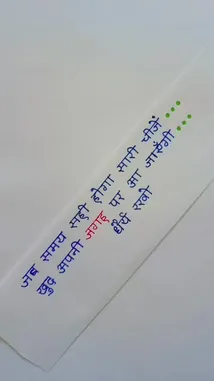 जब समय सही होगा सारी चीजें ...
खुद अपनी जगह पर आ जाएँगी ...
धैर्य रखो